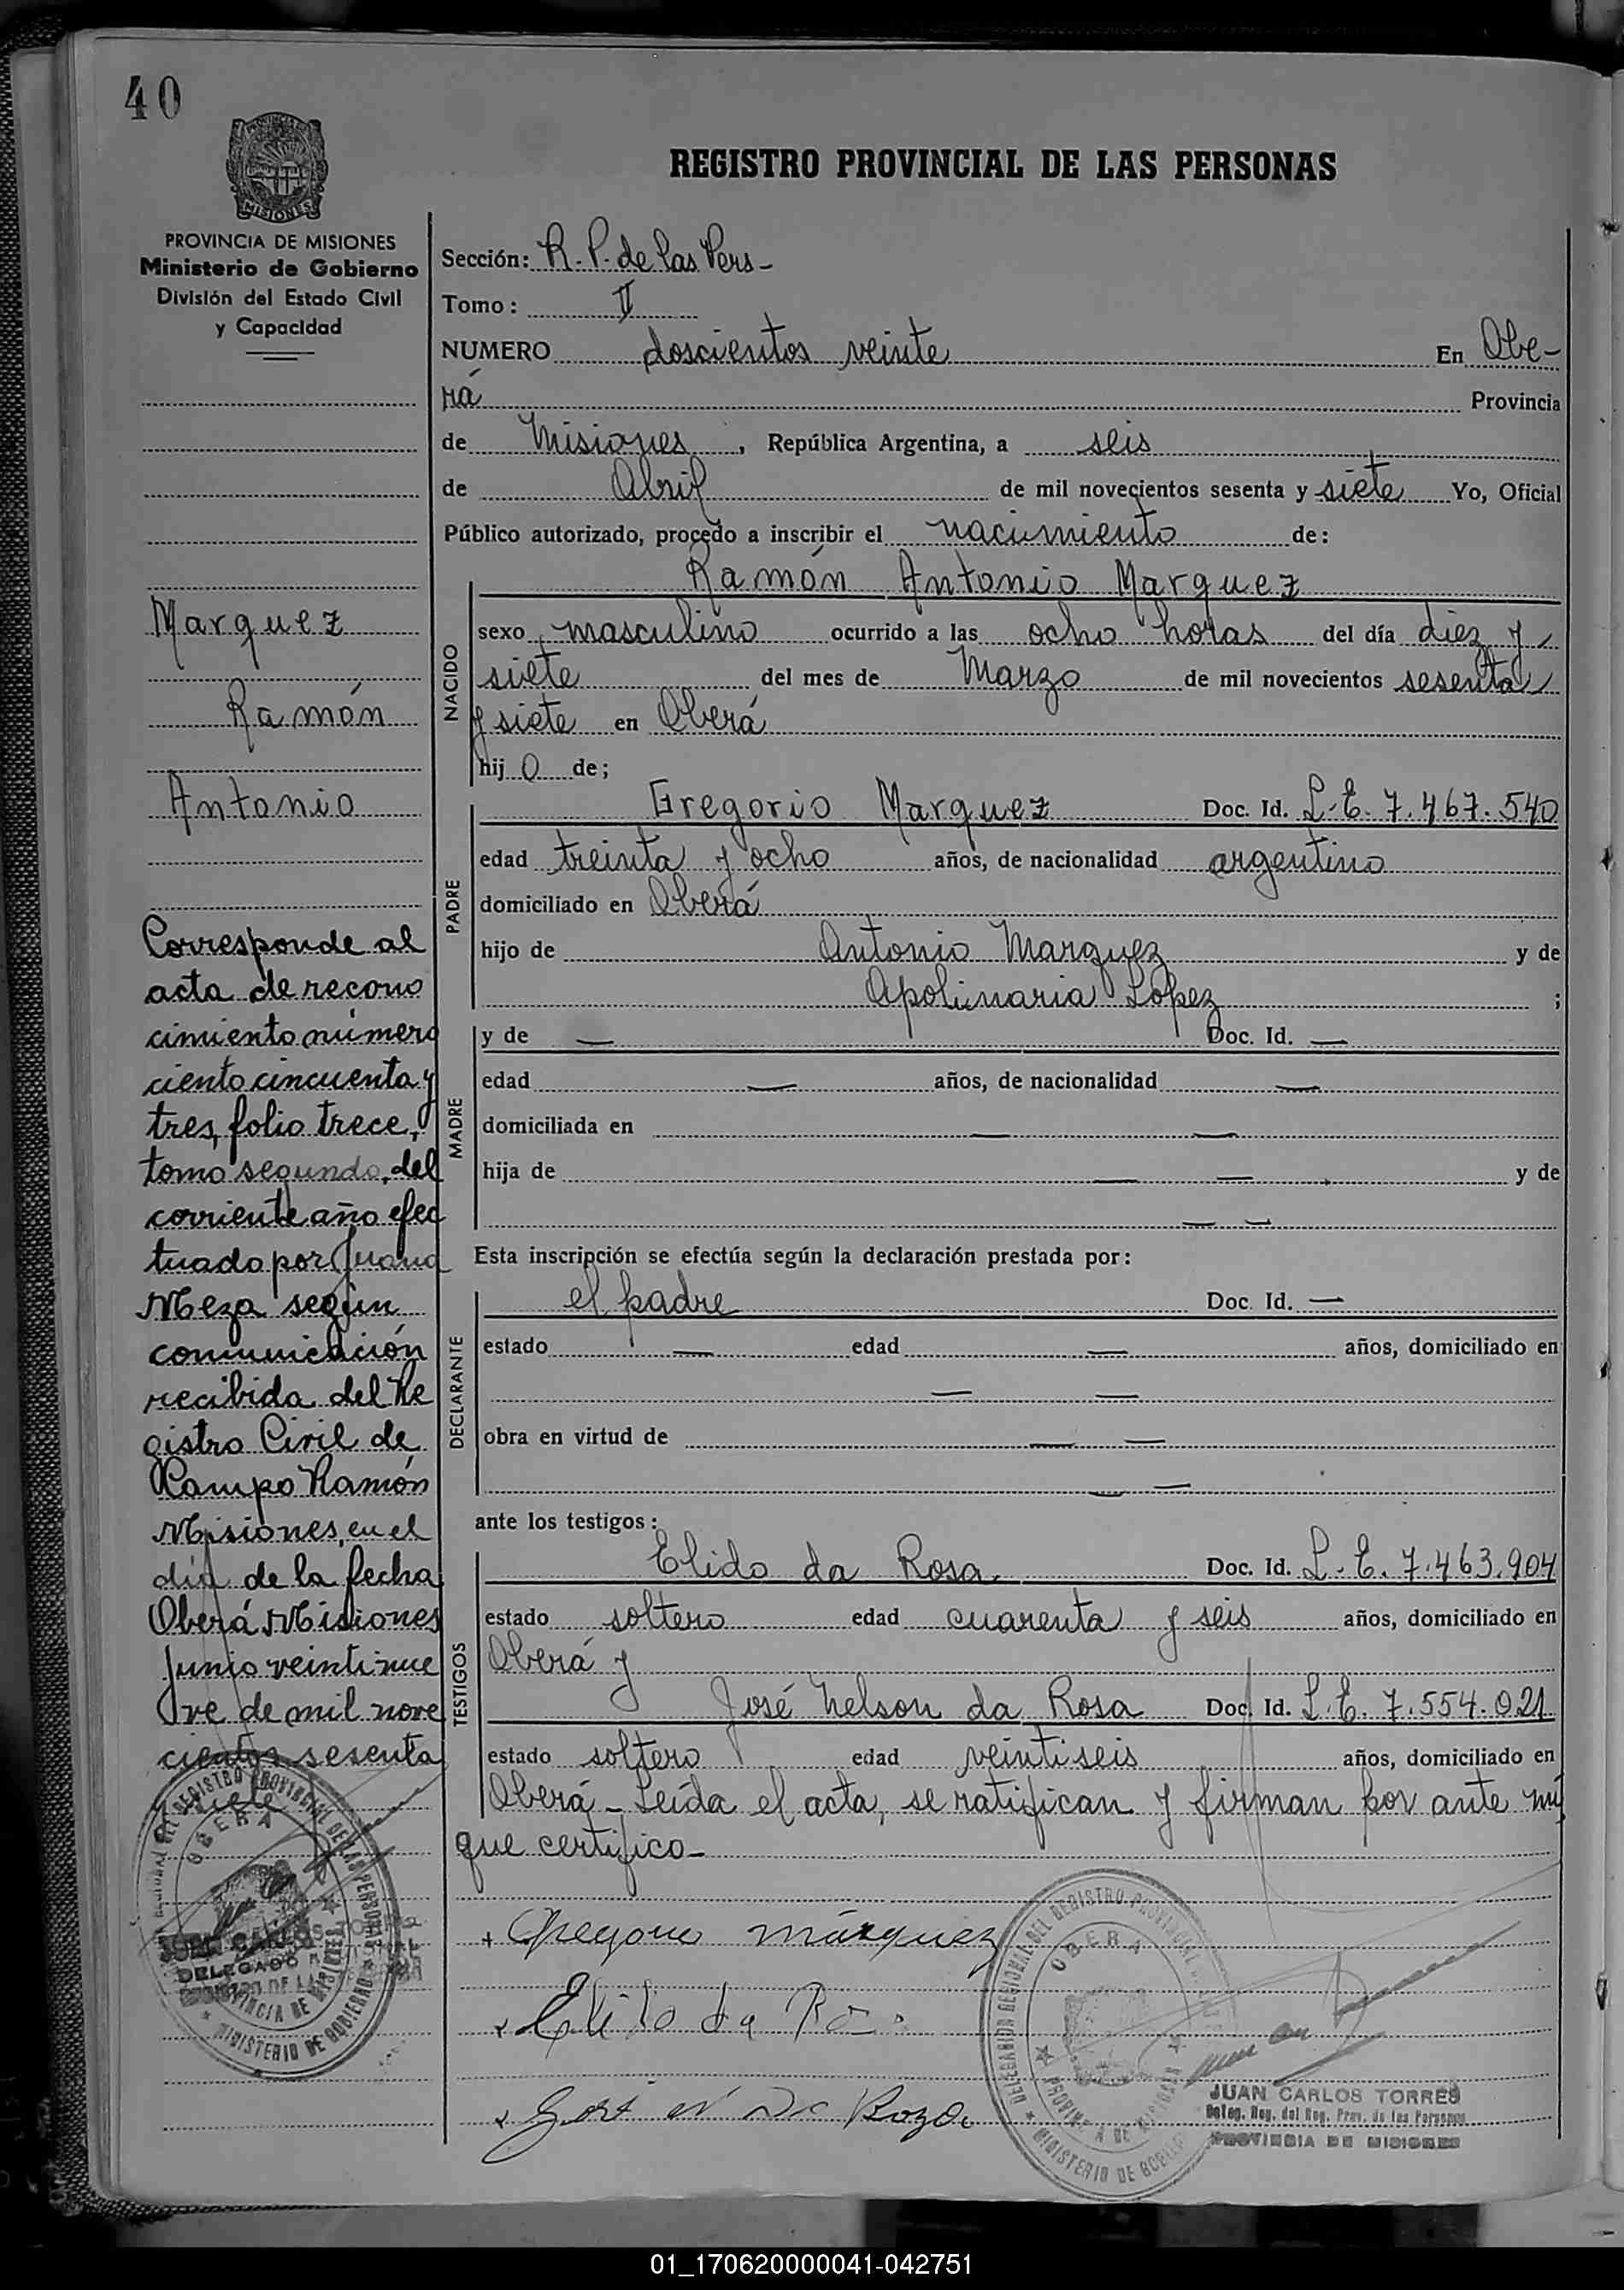 40
PROVINCIA DE MISIONES
Ministerio de Gobierno
División del Estado Civil
y Capacidad
Marquez
Ramón
Antonio
Corresponde al
acta de recono
cimiento número
ciento cincuenta y
tres, folio trece,
tomo segundo, del
corriente año efec
tuado por Juana
Meza según
comunicación
recibida del Re
gistro Civil de
Campo Ramón
Misiones, en el
día de la fecha
Oberá Misiones
Junio veintinue
ve de mil nove
cientos sesenta
siete
REGISTRO PROVINCIAL DE LAS PERSONAS
Sección: R. P. de las Pers-
Tomo: II
NUMERO doscientos veinte En Obe-
rá Provincia
de Misiones, República Argentina, a seis
de Abril de mil novecientos sesenta y siete Yo, Oficial
Público autorizado, procedo a inscribir el nacimiento de:
NACIDO
Ramón Antonio Marquez
sexo masculino ocurrido a las ocho horas del día diez y
siete del mes de Marzo de mil novecientos sesenta
y siete en Oberá
hij o de;
PADRE
Gregorio Marquez Doc. Id. L.E. 7.467.540
edad treinta y ocho años, de nacionalidad argentino
domiciliado en Oberá
hijo de Antonio Marquez y de
Apolinaria López ;
MADRE
y de — Doc. Id. —
edad — años, de nacionalidad —
domiciliada en — —
hija de — — y de
— —
Esta inscripción se efectúa según la declaración prestada por:
DECLARANTE
el padre Doc. Id. —
estado — edad — años, domiciliado en
— —
obra en virtud de — —
— —
ante los testigos:
TESTIGOS
Elido da Rosa. Doc. Id. L.E. 7.463.904
estado soltero edad cuarenta y seis años, domiciliado en
Oberá y
José Nelson da Rosa Doc. Id. L.E. 7.554.021
estado soltero edad veintiseis años, domiciliado en
Oberá - Leída el acta, se ratifican y firman por ante mí,
que certifico-
+ Gregorio márquez
Elido da
JUAN CARLOS TORRES
Deleg. Reg. del Reg. Prov. de las Personas
PROVINCIA DE MISIONES
01_170620000041-042751